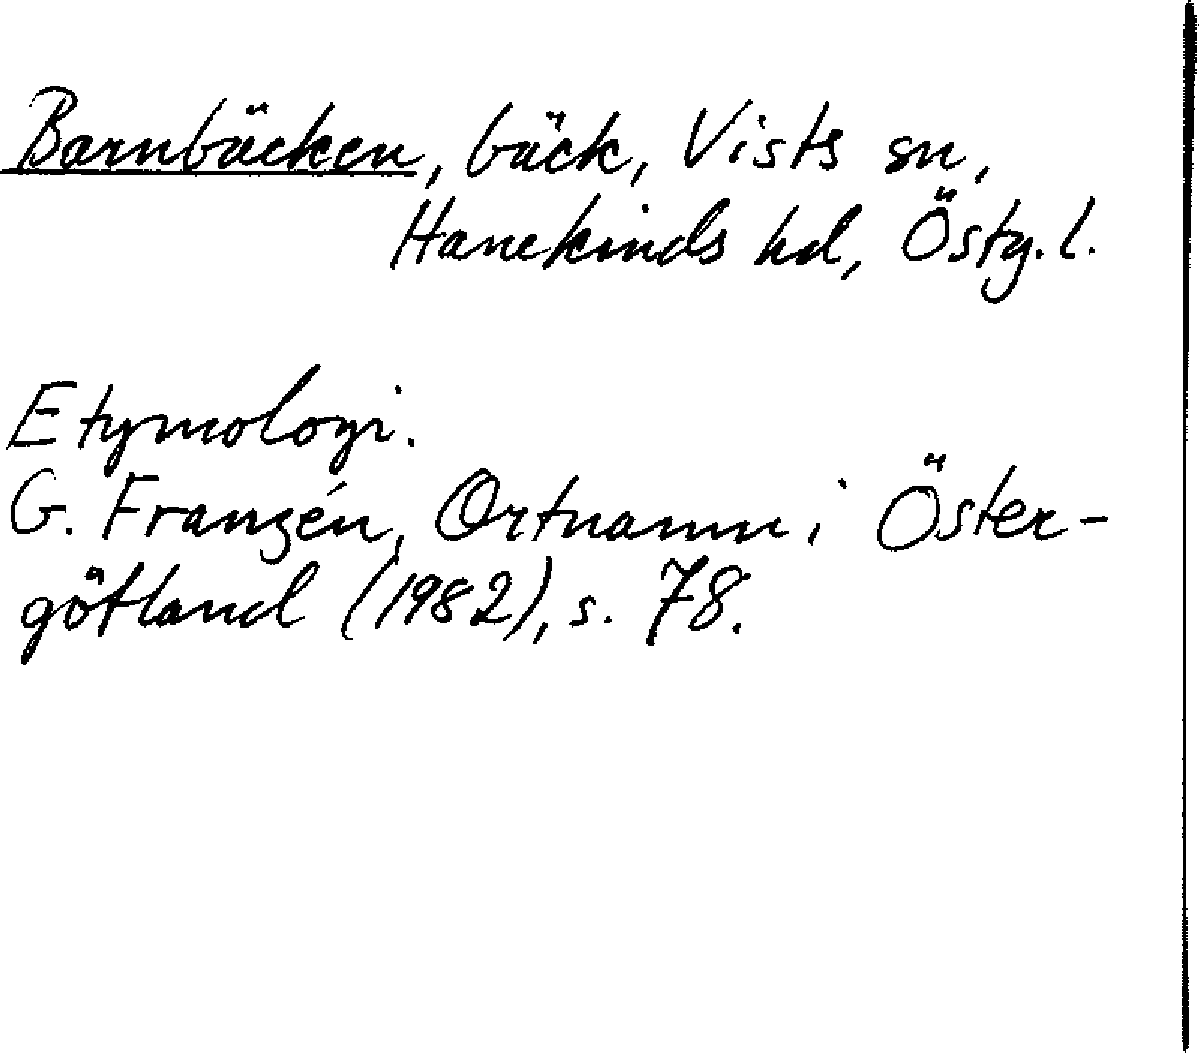 Barnbäcken, bäck, Vists sn,
Hanekinds hd, Östg. l.
Etymologi.
G. Franzén, Ortnamn i Öster-
götland (1982), s. 78.